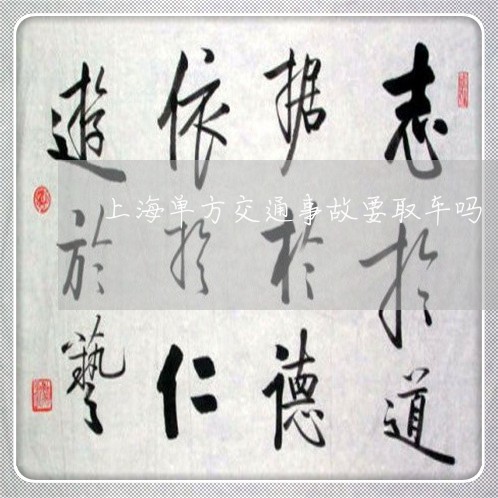 志於道
据於德
依於仁
遊於藝
上海单方交通事故要取车吗